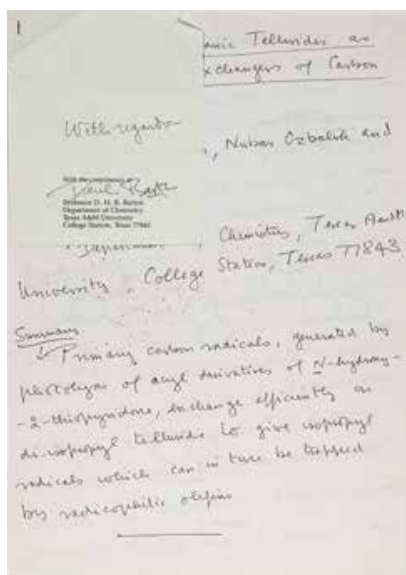 1
anic Tellurides as
xchangers of Carbon
With regards
, Nubar Ozbalik and
With the compliments of
Professor D. H. R. Barton
Department of Chemistry
Texas A&M University
College Station, Texas 77843
Department
Chemistry, Texas A and M
University, College Station, Texas 77843
Summary
Primary carbon radicals, generated by
photolysis of acyl derivatives of N-hydroxy-
-2-thiopyridone, exchange efficiently on
di-isopropyl telluride to give isopropyl
radicals which can in turn be trapped
by radicophilic olefins